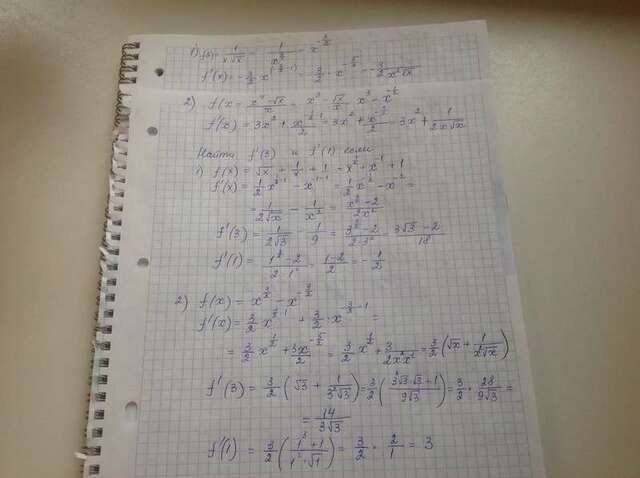 1) f(x) = 1/(x√x) = 1/x^(3/2) = x^(-3/2)
f'(x) = -3/2 · x^(-3/2-1) = -3/2 · x^(-5/2) = -3/(2x²√x)
2) f(x = (x⁴-√x)/x = x³ - √x/x = x³ - x^(-1/2)
f'(x) = 3x² + x^(-1/2-1)/2 = 3x² + x^(-3/2)/2 = 3x² + 1/(2x√x)
Найти f'(3) и f'(1) если
1) f(x) = √x + 1/x + 1 = x^(1/2) + x^(-1) + 1
f'(x) = 1/2 x^(1/2-1) - x^(-1-1) = 1/2 x^(-1/2) - x^(-2) =
= 1/(2√x) - 1/x² = (x^(3/2)-2)/(2x²)
f'(3) = 1/(2√3) - 1/9 = (3^(3/2)-2)/(2·3²) = (3√3-2)/18
f'(1) = (1^(3/2)-2)/(2·1²) = (1-2)/2 = -1/2
2) f(x) = x^(3/2) - x^(-3/2)
f'(x) = 3/2 x^(3/2-1) + 3/2 · x^(-3/2-1) =
= 3/2 x^(1/2) + 3x^(-5/2)/2 = 3/2 x^(1/2) + 3/(2x²x^(1/2)) = 3/2 (√x + 1/(x²√x))
f'(3) = 3/2 (√3 + 1/(3²√3)) = 3/2 ((3²√3·√3+1)/(9√3)) = 3/2 · 28/(9√3) =
= 14/(3√3)
f'(1) = 3/2 ((1³+1)/(1²·√1)) = 3/2 · 2/1 = 3